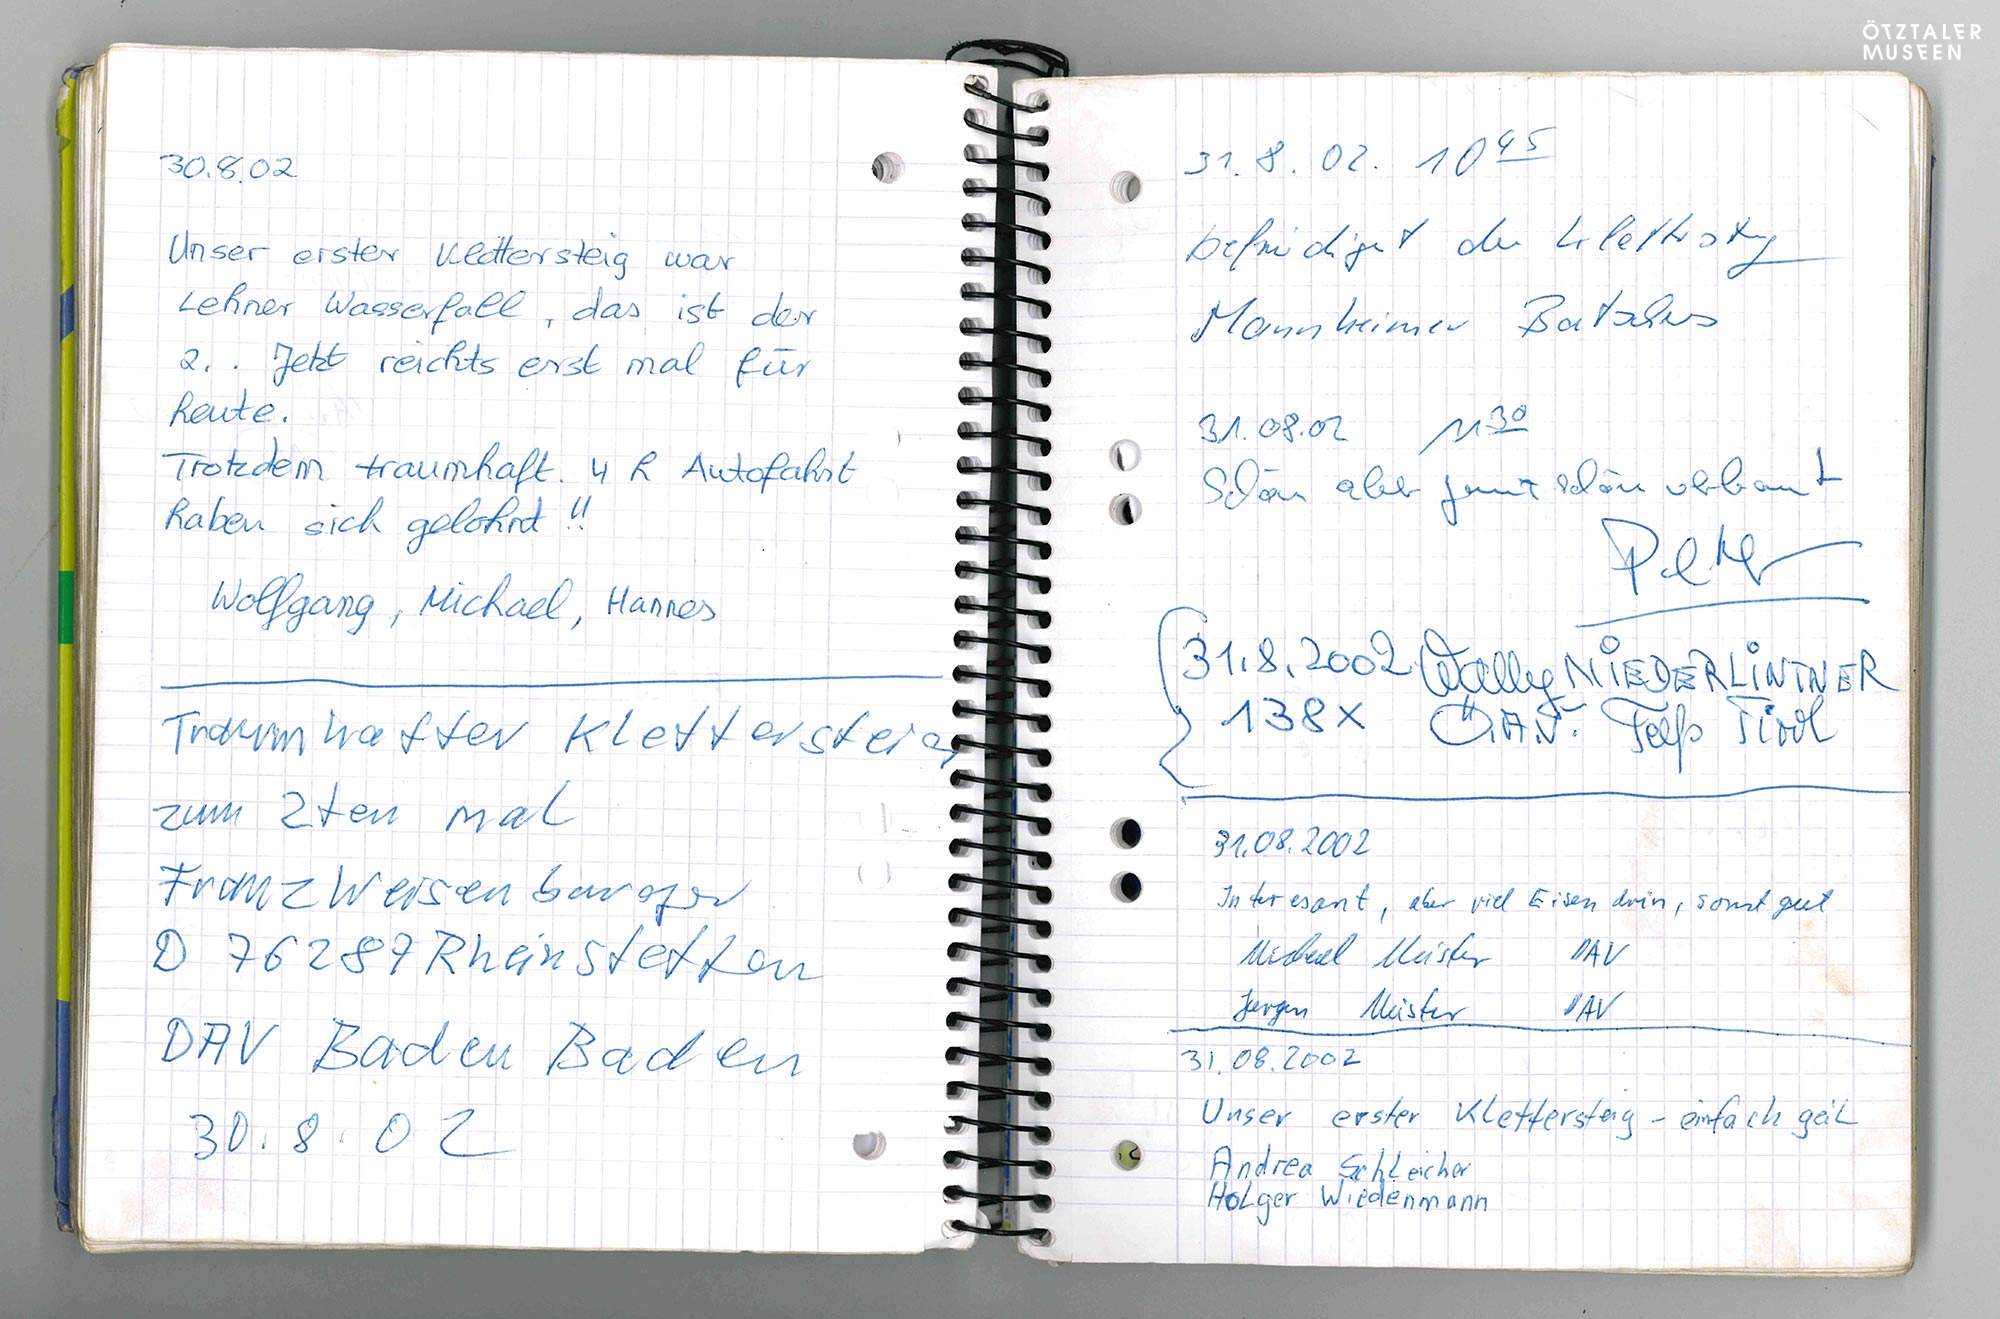 ÖTZTALER
MUSEEN
30.8.02
Unser erster Klettersteig war
Lehner Wasserfall, das ist der
2.. Jetzt reichts erst mal für
heute.
Trotzdem traumhaft. 4 h Autofahrt
haben sich gelohnt!!
Wolfgang, Michael, Hannes
Traumhafter Klettersteig
zum 2ten mal
Franz Weisenburger
D 76287 Rheinstetten
DAV Baden Baden
30.8.02
31.8.02. 10 45
der Klettersteig
Mannheimer
31.08.02 11 30
Schön aber ganz schön verbaut
Peter
31.8.2002 Wally NIEDERLINTNER
138x Ö.A.V. Telfs Tirol
31.08.2002
Interesant, aber viel Eisen drin, sonst gut
Michael Meister DAV
Jürgen Meister DAV
31.08.2002
Unser erster Klettersteig – einfach geil
Andrea Schleicher
Holger Wiedenmann